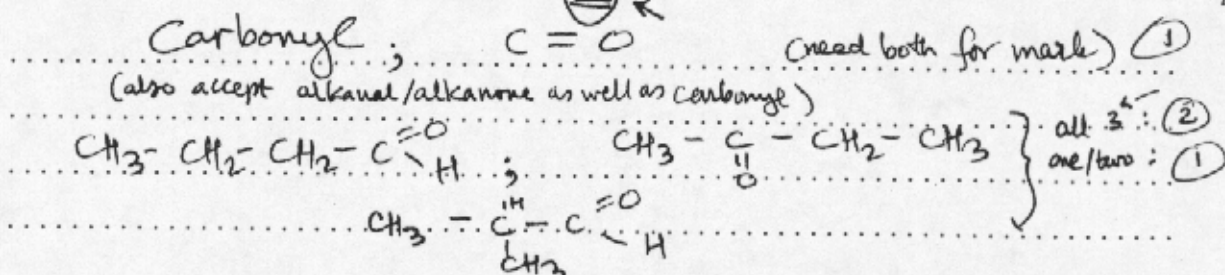 Carbonyl ; C = O (need both for mark) ①
(also accept alkanal/alkanone as well as carbonyl)
CH₃- CH₂- CH₂- C =O H ; CH₃ - C - CH₂ - CH₃ all 3 : ②
O one/two : ①
CH₃ - C - C =O H
H
CH₃